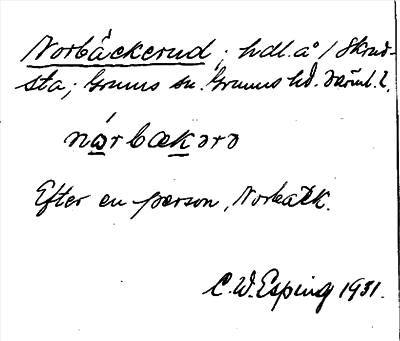 Norbäckerud; hdl. å 1 Skrud-
sta; Grums sn. Grums hd. Värml. l.
nårbækərə
Efter en person, Norbäck.
C. W. Esping 1931.